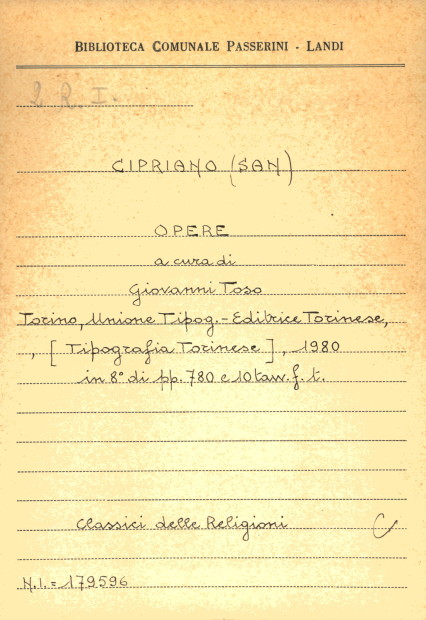 BIBLIOTECA COMUNALE PASSERINI - LANDI
Q. R. I.
CIPRIANO (SAN)
OPERE
a cura di
Giovanni Toso
Torino, Unione Tipog.-Editrice Torinese,
, [Tipografia Torinese], 1980
in 8° di pp. 780 e 10 tav. f. t.
Classici delle Religioni
C
N.I. = 179596